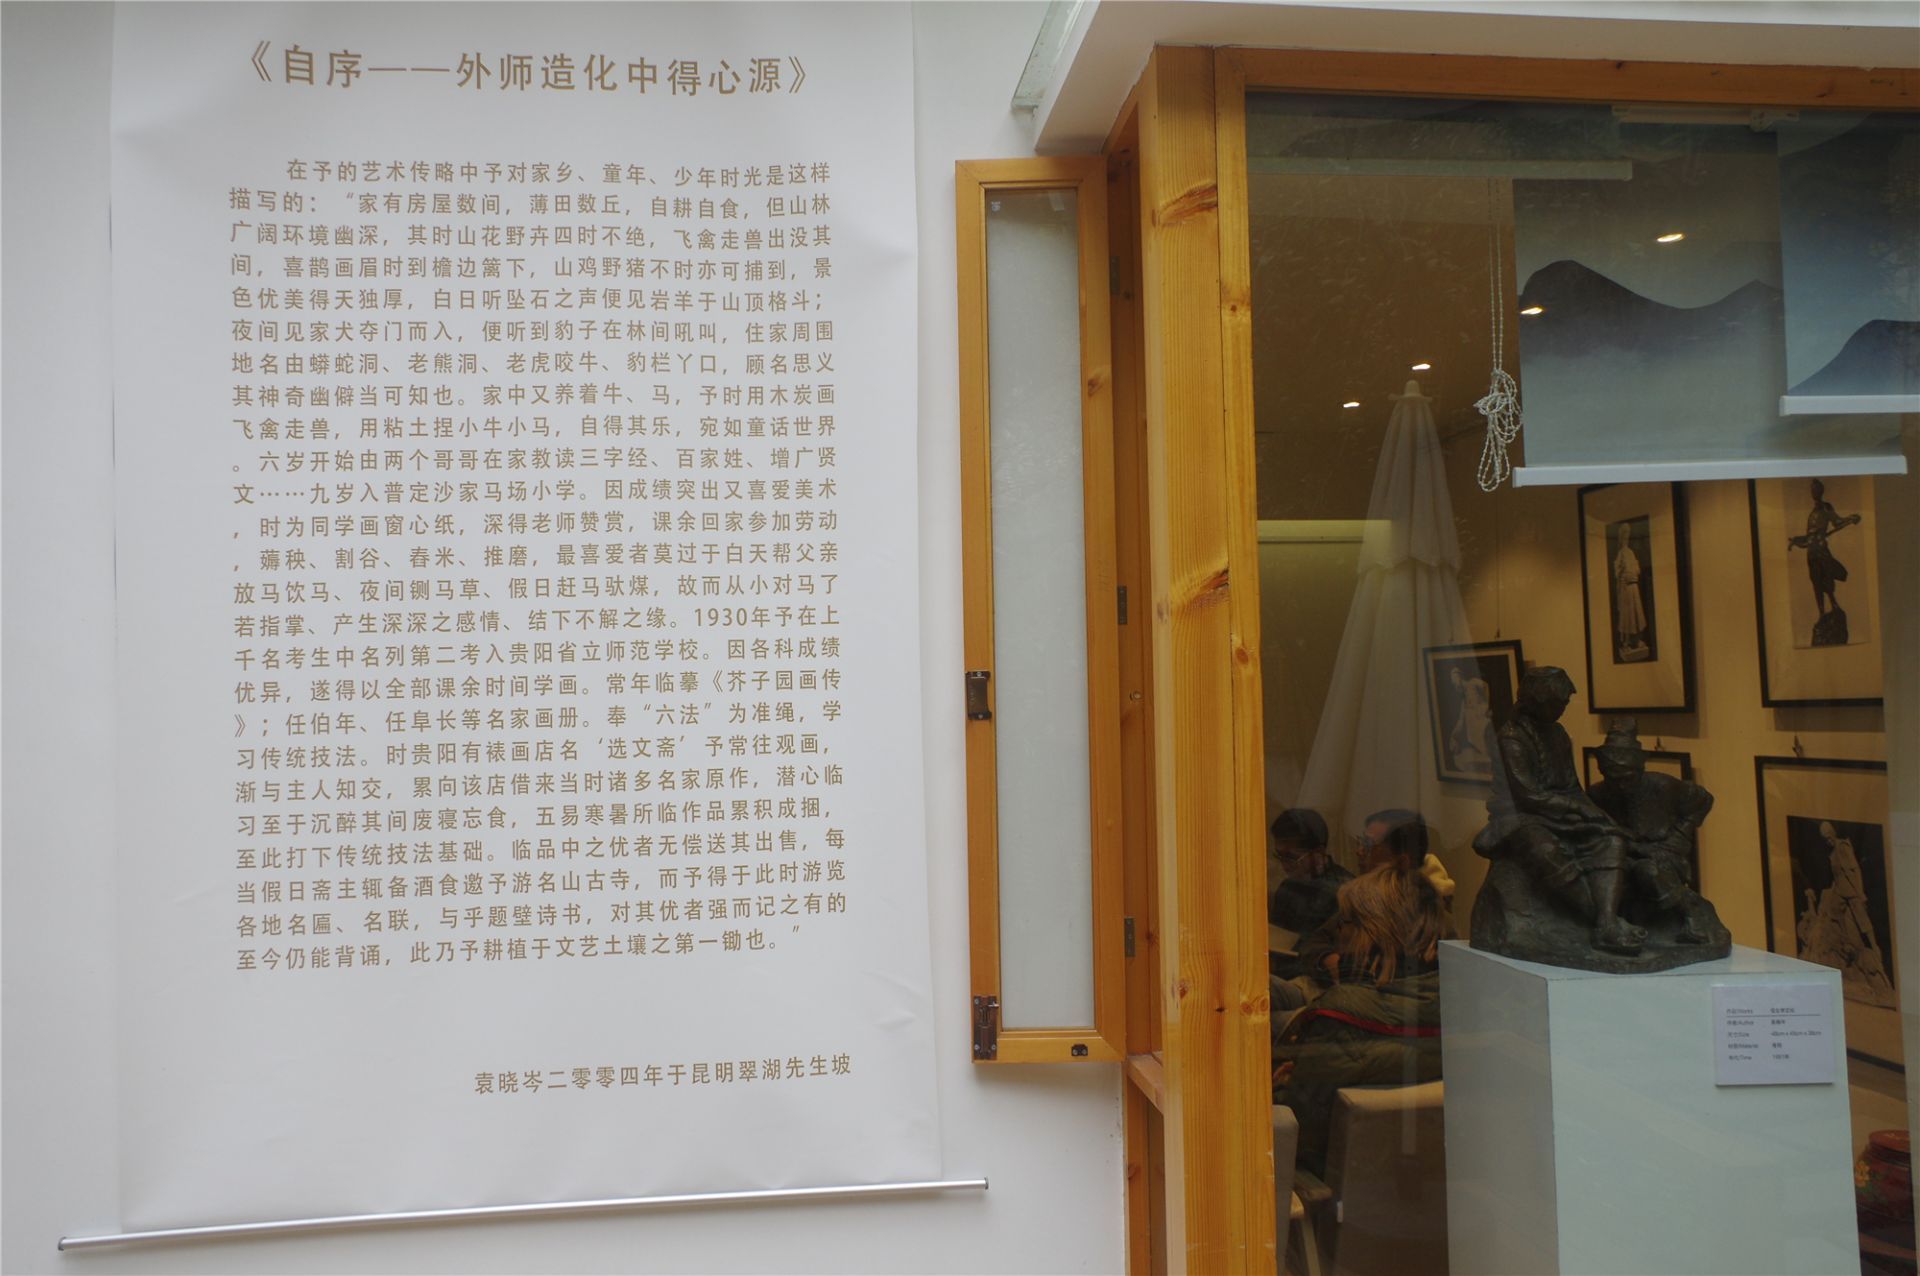 《自序——外师造化中得心源》
在予的艺术传略中予对家乡、童年、少年时光是这样
描写的：“家有房屋数间，薄田数丘，自耕自食，但山林
广阔环境幽深，其时山花野卉四时不绝，飞禽走兽出没其
间，喜鹊画眉时到檐边篱下，山鸡野猪不时亦可捕到，景
色优美得天独厚，白日听坠石之声便见岩羊于山顶格斗；
夜间见家犬夺门而入，便听到豹子在林间吼叫，住家周围
地名由蟒蛇洞、老熊洞、老虎咬牛、豹栏丫口，顾名思义
其神奇幽僻当可知也。家中又养着牛、马，予时用木炭画
飞禽走兽，用粘土捏小牛小马，自得其乐，宛如童话世界
。六岁开始由两个哥哥在家教读三字经、百家姓、增广贤
文……九岁入普定沙家马场小学。因成绩突出又喜爱美术
，时为同学画窗心纸，深得老师赞赏，课余回家参加劳动
，薅秧、割谷、舂米、推磨，最喜爱者莫过于白天帮父亲
放马饮马、夜间铡马草、假日赶马驮煤，故而从小对马了
若指掌、产生深深之感情、结下不解之缘。1930年予在上
千名考生中名列第二考入贵阳省立师范学校。因各科成绩
优异，遂得以全部课余时间学画。常年临摹《芥子园画传
》；任伯年、任阜长等名家画册。奉“六法”为准绳，学
习传统技法。时贵阳有裱画店名‘选文斋’予常往观画，
渐与主人知交，累向该店借来当时诸多名家原作，潜心临
习至于沉醉其间废寝忘食，五易寒暑所临作品累积成捆，
至此打下传统技法基础。临品中之优者无偿送其出售，每
当假日斋主辄备酒食邀予游名山古寺，而予得于此时游览
各地名匾、名联，与乎题壁诗书，对其优者强而记之有的
至今仍能背诵，此乃予耕植于文艺土壤之第一锄也。”
袁晓岑二零零四年于昆明翠湖先生坡